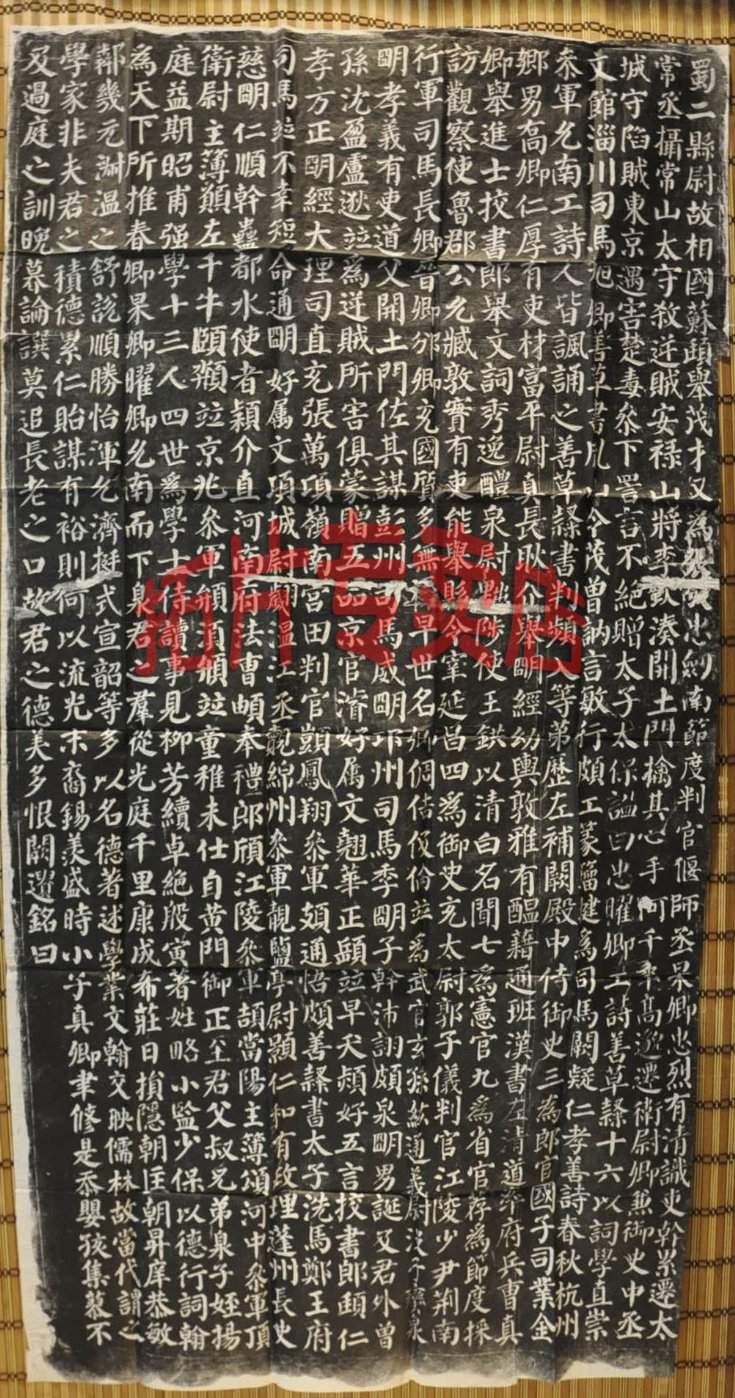 蜀二縣尉故相國蘇頲舉茂才又為張敬忠劒南節度判官偃師丞杲卿忠烈有清識吏幹累遷太
常丞攝常山太守殺逆賊安祿山將李欽湊開土門擒其心手何千年高邈遷衛尉卿兼御史中丞
城守陷賊東京遇害楚毒參下詈言不絕贈太子太保謚曰忠曜卿工詩善草隸十六以詞學直崇
文館淄川司馬旭卿善草書胤山令茂曾訥言敏行頗工篆籀犍為司馬闕疑仁孝善詩春秋杭州
參軍允南工詩人皆諷誦之善草隸書判頻入等第歷左補闕殿中侍御史三為郎官國子司業金
鄉男喬卿仁厚有吏材富平尉真長耿介舉明經幼輿敦雅有醖藉通班漢書左清道率府兵曹真
卿舉進士校書郎舉文詞秀逸醴泉尉黜陟使王鉷以清白名聞七為憲官九為省官荐為節度採
訪觀察使魯郡公允臧敦實有吏能舉縣令宰延昌四為御史充太尉郭子儀判官江陵少尹荊南
行軍司馬長卿晉卿邠卿充國質多無祿早世名卿倜佶伋倫並為武官玄孫紘通義尉沒于蠻泉
明孝義有吏道父開土門佐其謀彭州司馬威明邛州司馬季明子幹沛詡頗泉明男誕及君外曾
孫沈盈盧逖並為逆賊所害俱蒙贈五品京官濬好属文翹華正頣並早夭熲好五言校書郎頲仁
孝方正明經大理司直充張萬頃嶺南營田判官顗鳳翔參軍頗通悟頗善隸書太子洗馬鄭王府
司馬並不幸短命通明好属文項城尉翽溫江丞覿綿州參軍靚鹽亭尉顥仁和有政理蓬州長史
慈明仁順幹蠱都水使者穎介直河南府法曹頔奉禮郎頎江陵參軍頡當陽主簿頌河中參軍頂
衛尉主簿願左千牛頤頵並京兆參軍頍須頯並童稚未仕自黃門御正至君父叔兄弟息子姪揚
庭益期昭甫強學十三人四世為學士侍讀事見柳芳續卓絕殷寅著姓略小監少保以德行詞翰
為天下所推春卿杲卿曜卿允南而下息君之羣從光庭千里康成希莊日損隱朝匡朝昇庠恭敏
鄰幾元淑溫之舒說順勝怡渾允濟挺式宣韶等多以名德著述學業文翰交映儒林故當代謂之
學家非夫君之積德累仁貽謀有裕則何以流光末裔錫羨盛時小子真卿聿脩是忝嬰孩集蓼不
及過庭之訓晚暮論譔莫追長老之口故君之德美多恨闕遺銘曰
拓片专卖店